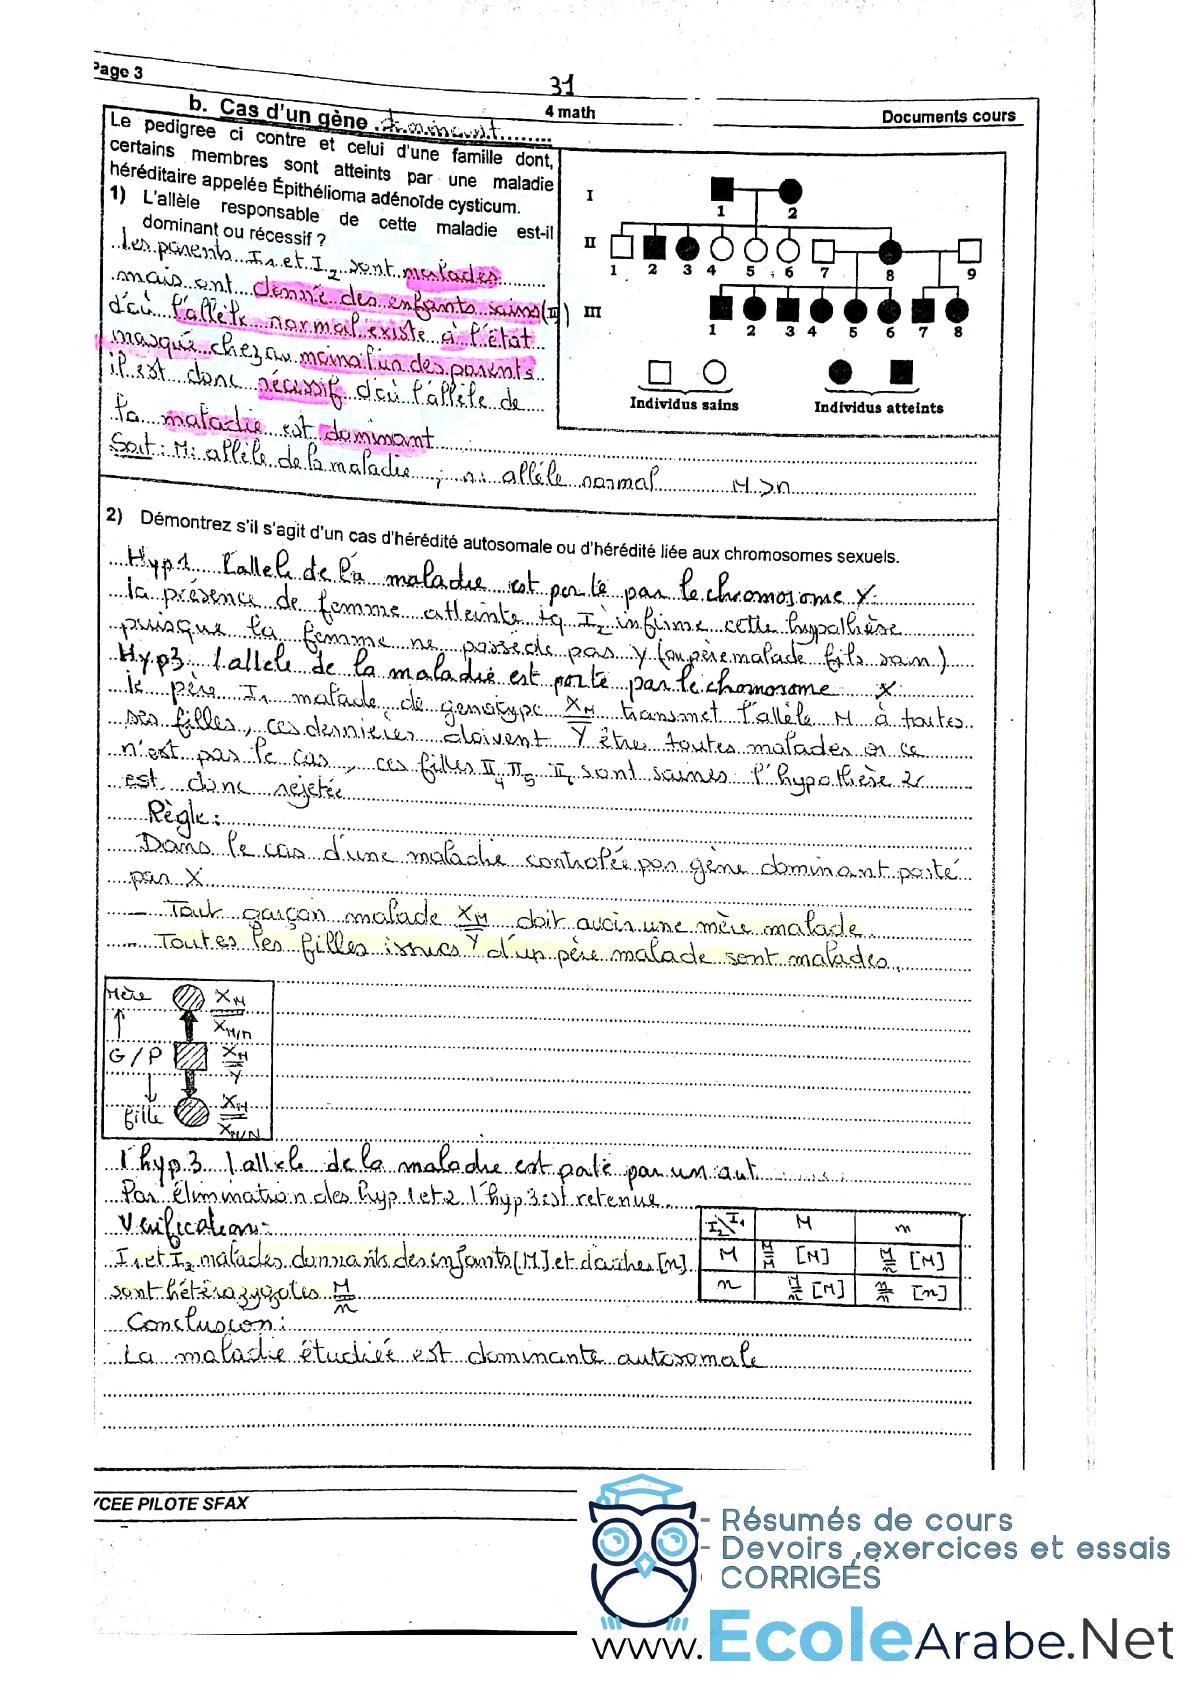 Page 3
31
4 math
Documents cours
b. Cas d'un gène dominant
Le pedigree ci contre et celui d'une famille dont,
certains membres sont atteints par une maladie
héréditaire appelée Épithélioma adénoïde cysticum.
1) L'allèle responsable de cette maladie est-il
dominant ou récessif ?
Les parents I1 et I2 sont malades
mais ont donné des enfants sains (II)
d'où l'allèle normal existe à l'état
masqué chez au moins l'un des parents
il est donc récessif d'où l'allèle de
la maladie est dominant
Soit : M : allèle de la maladie ; n : allèle normal M > n
I
1 2
II
1 2 3 4 5 6 7 8 9
III
1 2 3 4 5 6 7 8
Individus sains
Individus atteints
2) Démontrez s'il s'agit d'un cas d'hérédité autosomale ou d'hérédité liée aux chromosomes sexuels.
Hyp1 l'allele de la maladie est porté par le chromosome Y
la présence de femme atteinte tq I2 infirme cette hypothèse
puisque la femme ne possède pas Y (ou père malade fils sain)
Hyp3 l'allele de la maladie est porté par le chromosome X
le père I1 malade de génotype XM/Y transmet l'allèle M à toutes
ses filles, ces dernières doivent être toutes malades or ce
n'est pas le cas, ces filles II4 II5 II6 sont saines l'hypothèse 2
est donc rejetée
Règle :
Dans le cas d'une maladie controlée par gène dominant porté
par X
- Tout garçon malade XM/Y doit avoir une mère malade
- Toutes les filles issues d'un père malade sont malades.
Mère XM/XM/n
G / P XM/Y
fille XM/XM/N
l'hyp.3 l'allele de la maladie est porté par un aut
Par élimination des hyp 1 et 2 l'hyp 3 est retenue
Vérification :
I1 et I2 malades donnant des enfants [M] et d'autres [n]
sont hétérozygotes M/n
I2\I1 M n
M M/M [M] M/n [M]
n M/n [M] n/n [n]
Conclusion :
La maladie étudiée est dominante autosomale
YCEE PILOTE SFAX
- Résumés de cours
- Devoirs ,exercices et essais
CORRIGÉS
www.EcoleArabe.Net